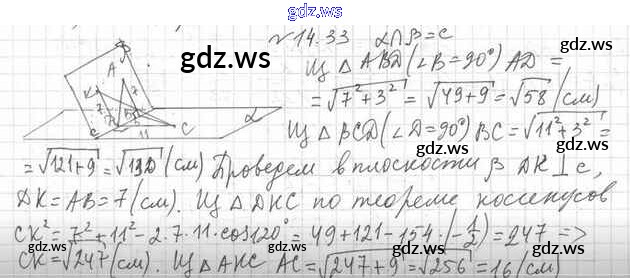 gdz.ws
gdz.ws
№14.33 α∩β=c
Из ΔABD(∠B=90°) AD =
= √7²+3² = √49+9 = √58 (см)
Из ΔBCD(∠D=90°) BC = √11²+3² =
= √121+9 = √130 (см) Проведем в плоскости β DK⊥c,
DK=AB=7(см). Из ΔDKC по теореме косинусов
CK²=7²+11²-2·7·11·cos120°=49+121-154·(-1/2)=247 =>
CK=√247(см). Из ΔAKC AC=√247+9=√256=16(см)
A
K
7
7
B
c
C
11
α
gdz.ws
gdz.ws
gdz.ws
gdz.ws